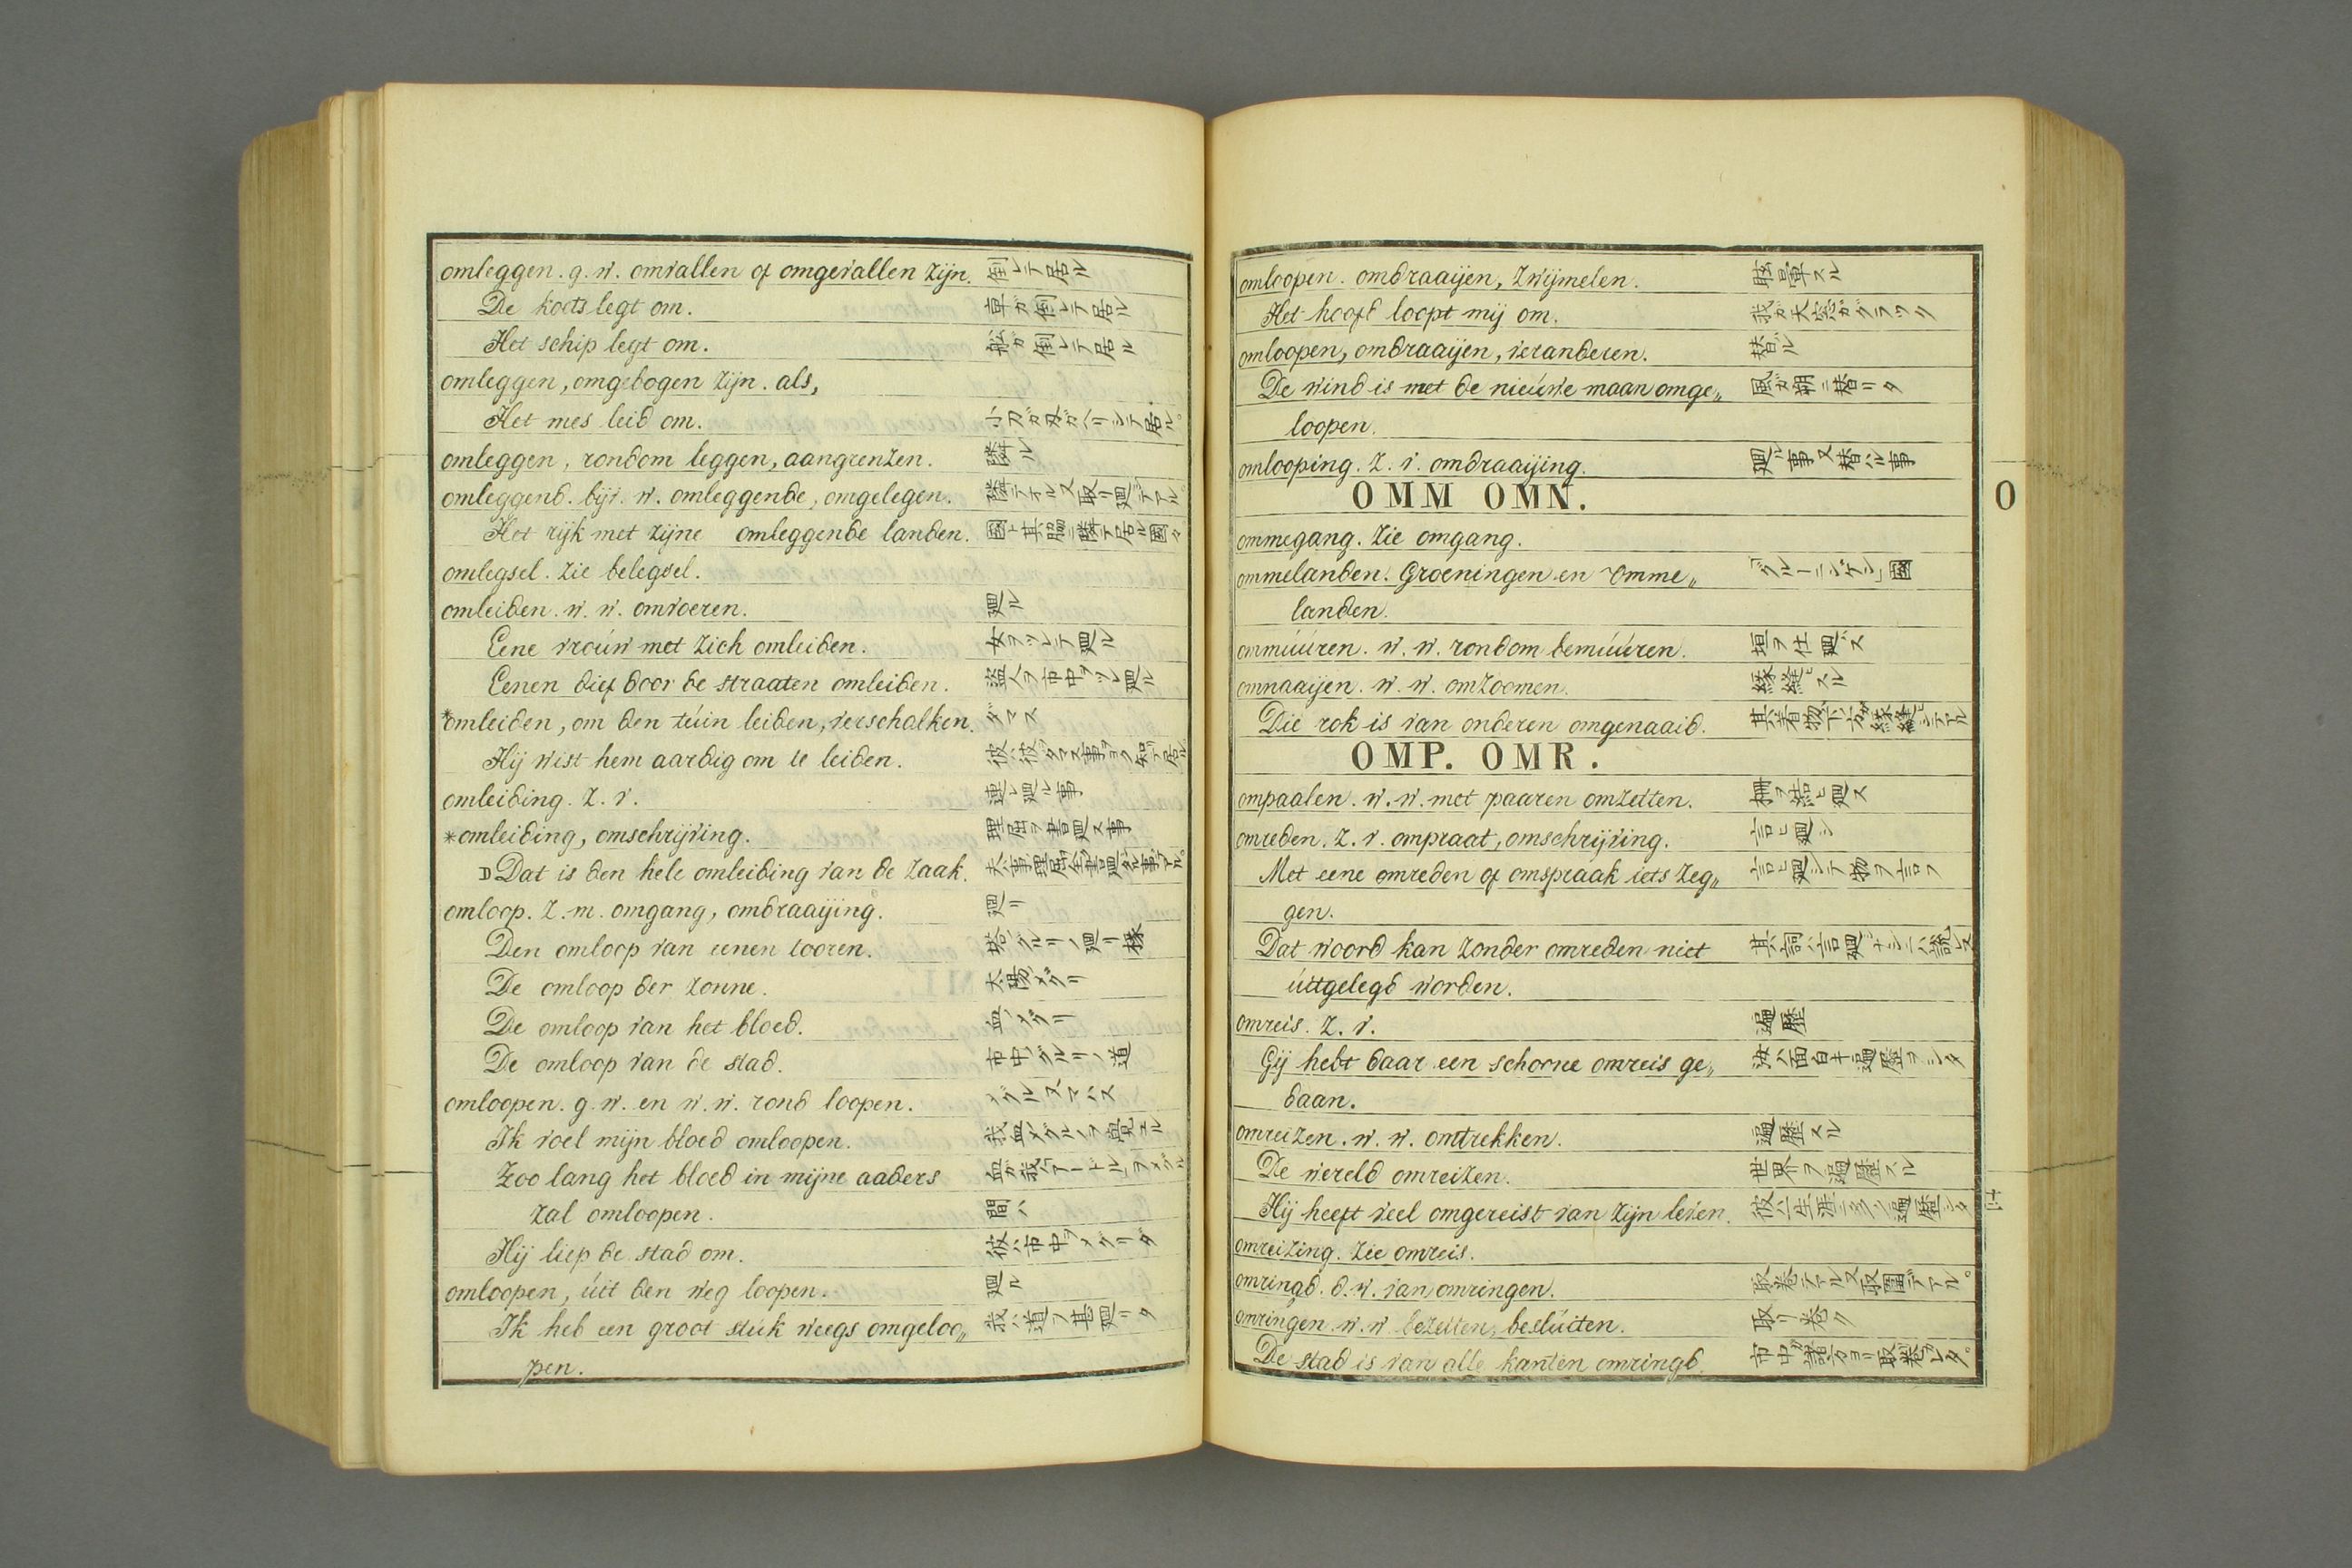 omleggen. g. w. omvallen of omgevallen zijn. 倒レテ居ル
De koets legt om. 車ガ倒レテ居ル
Het schip legt om. 舩ガ倒レテ居ル
omleggen, omgebogen zijn. als,
Het mes leid om. 小刀ガ刄ガヘリシテ居ル。
omleggen, rondom leggen, aangrenzen. 隣ル
omleggend. bijv. w. omleggende, omgelegen. 隣テオル又取リ廻シテアル。
Het rijk met zijne omleggende landen. 國ト其脇ニ隣テ居ル國々
omlegsel. Zie belegsel.
omleiden. w. w. omvoeren. 廻ル
Eene vroúw met zich omleiden. 女ヲツレテ廻ル
Eenen dief door de straaten omleiden. 盗人ヲ市中ヲツレ廻ル
*omleiden, om den túin leiden, verschalken. ダマス
Hij wist hem aardig om te leiden. 彼ハ彼ヲダマス事ヲヨク知テ居ル
omleiding. Z. v.連レ廻ル事
*omleiding, omschrijving. 理屈ヲ書廻ス事
D Dat is den hele omleiding van de zaak.
omloop. Z. m. omgang, omdraaijing. 廻リ
Den omloop van eenen tooren. 塔ノグルリノ廻リ椽
De omloop der zonne. 太陽ノメグリ
De omloop van het bloed. 血ノメグリ
De omloop van de stad. 市中ノグルリノ道
omloopen. g. w. en w. w. rond loopen. メグル又マハス
Ik voel mijn bloed omloopen. 我血ノメグルノヲ覚エル
Zoo lang het bloed in mijne aaders 血ガ我ガ「アードル」ヲメグル
zal omloopen. 間ハ
Hij liep de stad om. 彼ハ市中ヲメグリタ
omloopen, úit den weg loopen. 廻ル
Ik heb een groot stúk weegs omgeloo„ 我ハ道ヲ甚廻リタ
pen.
omloopen. omdraaijen, zwijmelen. 眩暈スル
Het hoofd loopt mij om. 我ガ天窓ガグラツク
omloopen, omdraaijen, veranderen. 替ル
De wind is met de nieúwe maan omge„ 風ガ朔ニ替リタ
loopen.
omlooping. Z. v. omdraaijing. 廻ル事又替ハル事
OMM OMN.
ommegang. Zie omgang.
ommelanden. Groeningen en omme„ 「グルーニンゲン」國
landen.
ommúúren. w. w. rondom bemúúren. 垣ヲ仕廻ハス
omnaaijen. w. w. omzoomen. 縁縫ヒスル
Die rok is van onderen omgenaaid. 其着物ハ下ノ方ガ縁縫ヒシテアル
OMP. OMR.
ompaalen. w. w. met paaren omzetten. 柵ヲ結ヒ廻ス
omreden. Z. v. ompraat, omschrijving. 言ヒ廻シ
Met eene omreden of omspraak iets zeg„ 言ヒ廻シテ物ヲ言フ
gen.
Dat woord kan zonder omreden niet
úitgelegd worden.
omreis. Z. v. 遍歴
Gij hebt daar een schoone omreis ge„ 汝ハ面白キ遍歴ヲシタ
daan.
omreizen. w. w. omtrekken. 遍歴スル
De wereld omreizen. 世界ヲ遍歴スル
Hij heeft veel omgereist van zijn leven. 彼ハ一生涯ニタクサン遍歴シタ
omreizing. Zie omreis.
omringd. d. w. van omringen. 取巻テアル又取圍デアル。
omringen. w. w. bezetten, beslúiten. 取リ巻ク
De stad is van alle kanten omringd. 市中ガ諸方ヨリ取巻レタ。
O